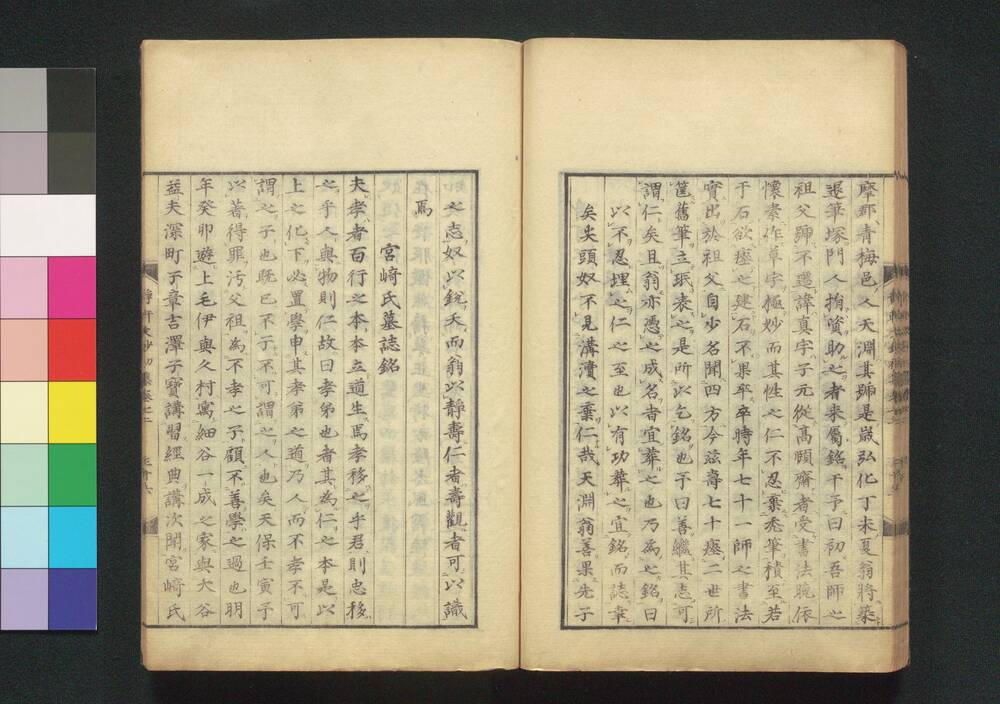 摩郡青梅邑人天淵其號是歲弘化丁未夏翁將築
退筆塚門人捐資助之者来屬銘于予曰初吾師之
祖父號不遷諱真字子元從高頤齋者受書法晚依
懷素作草字極妙而其性之仁不忍棄禿筆積至若
干石欲瘞之建石不果卒卒時年七十一師之書法
實出於祖父自少名聞四方今茲壽七十瘞二世所
篋舊筆立珉表之是所以乞銘也予曰善繼其志可
謂仁矣且翁亦憑之成名者宜葬之也乃為之銘曰
以不忍埋之仁之至也以有功葬之宜銘而誌韋
矣尖頭奴不見溝瀆之棄仁哉天淵翁善果先子
之志奴以銳夭而翁以靜壽仁者壽觀者可以識
焉
宮﨑氏墓誌銘
夫孝者百行之本本立道生焉孝移之乎君則忠移
之乎人與物則仁故曰孝弟也者其為仁之本是以
上之化下必置學申其孝弟之道乃人而不孝不可
謂之子也既已不子不可謂之人也矣天保壬寅子
以著得罪汚父祖為不孝之子顧不善學之過也明
年癸卯遊上毛伊與久村寓細谷一成之家與大谷
益夫深町子章吉澤子寶講習經典講次聞宮﨑氏